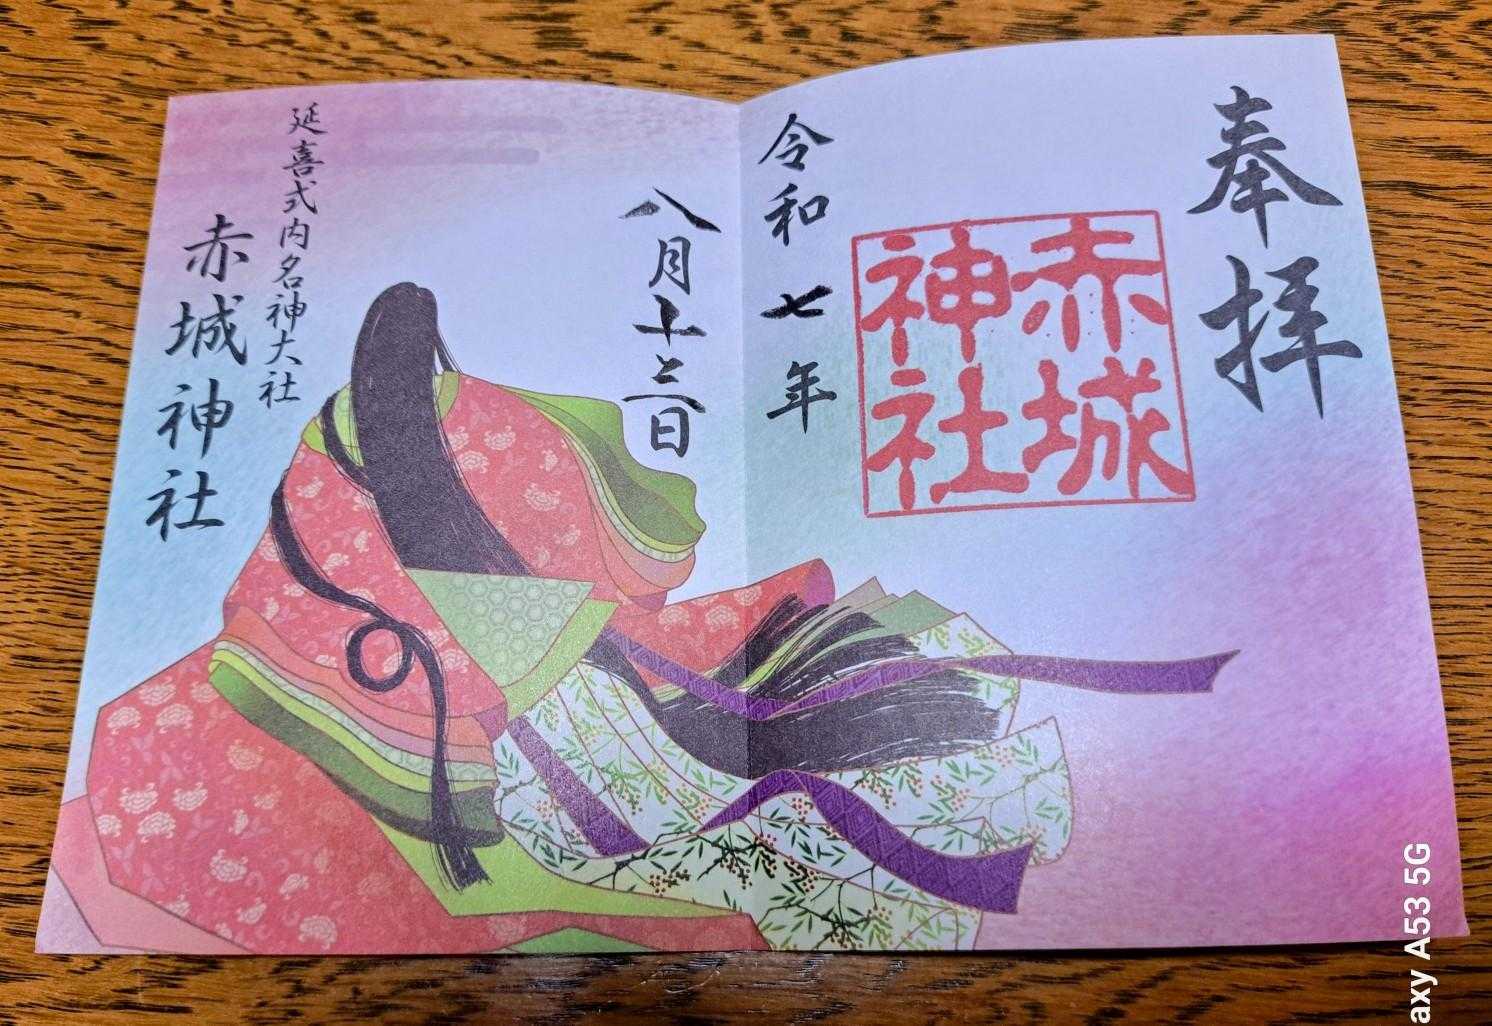 奉拝
赤城
神社
令和七年
八月十三日
延喜式内名神大社
赤城神社
axy A53 5G